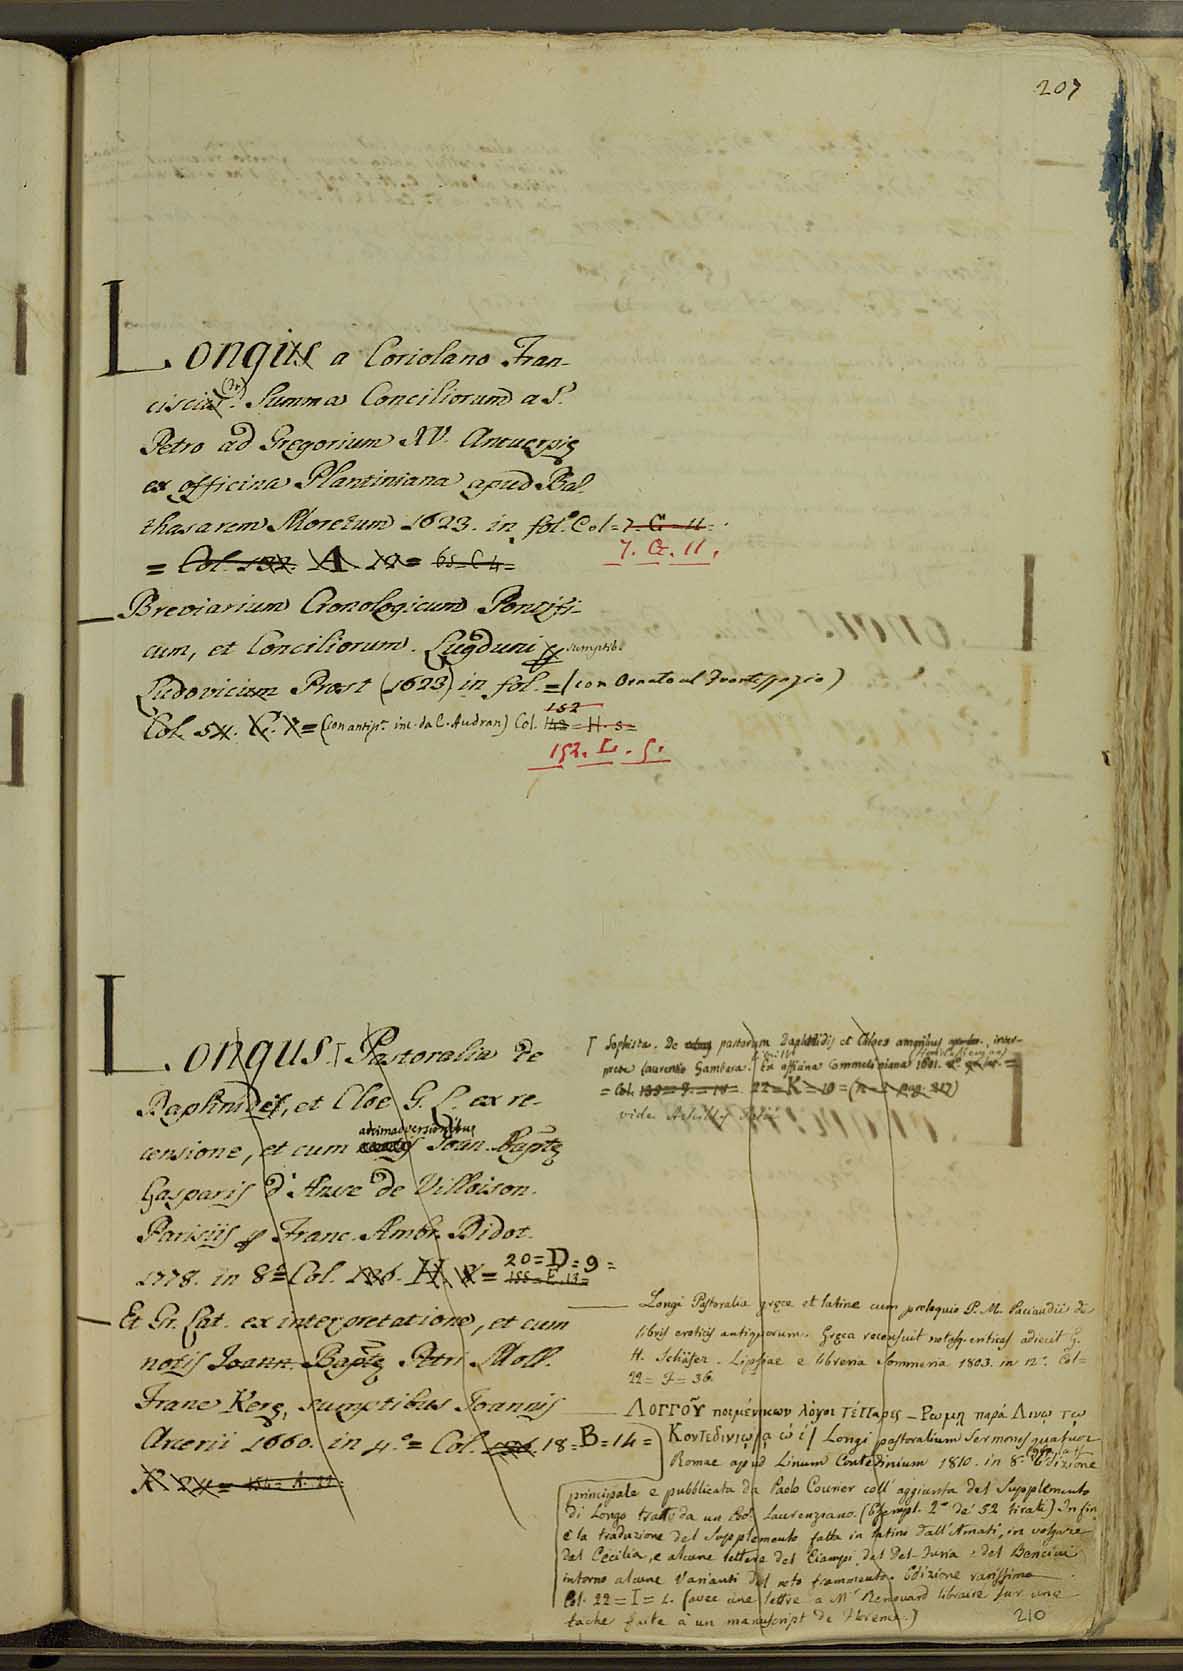 207
Longius a Coriolano Fran-
ciscus. Summa Conciliorum a S.
Petro ad Gregorium XV. Antuerpię
ex officina Plantiniana apud Bal
thasarem Moretum 1623. in fol.º Col = 7. G = 11 =
7. G. 11.
= Col. 132. A. 12 = 65 = C 4 =
Breviarium Cronologicum Pontifi-
cum, et Conciliorum. Lugduni sumptib.
Ludovicium Prost (1623) in fol. = (con Ornato al Frontespizio)
152
Col. 5x. C. x = (Con antip. inc. da C. Audran) Col. = H. 5 =
152. L. 5.
Longus. Pastoralia de
Daphnidis, et Cloe G. L. ex re-
animadversionibus
censione, et cum Joan. Baptę
Gasparis d'Ansse de Villoison.
Parisiis Franc. Ambr. Didot.
20 = D = 9 =
1778. in 8º Col. 126. H. X = 155 = E. 13 =
Et Gr. Lat. ex interpretatione, et cum
notis Joann. Baptę Petri Moll.
Frane Kerę, sumptibus Joannis
Arcerii 1660. in 4.º = Col. 18 = B = 14 =
Sophista. De pastorum Daphnidis et Chloes amoribus, inter-
prete Laurentio Gambara. Ex officina Commeliniana 1601.
= Col. 22 = K = 10 =
vide
Longi Pastoralia gręce et latine cum proloquio P. M. Paciaudii de
libris eroticis antiquorum. Gręca recensuit notasq. criticas adiecit G.
H. Schäfer. Lipsiae e libreria Sommeria 1803. in 12.º Col =
22 = F = 36.
ΛΟΓΓΟΥ ποιμένικων λόγοι τέτταρες _ Ρωμη παρά Λινω τω
Κοντεδινιω / α ώ ί / Longi pastoralium Sermones quatuor
Romae apud Linum Contedinium 1810. in 8.º Edizione
principale e pubblicata da Paolo Courier coll'aggiunta del Supplemento
di Longo tratto da un Cod. Laurenziano. (Esempl. 2º de' 52 tirati). In fin
è la traduzione del Supplemento fatta in latino dall'Amati, in volgare
dal Cecilia, e alcune lettere del Ciampi, del Del-Furia e del Bencini
intorno alcune Varianti del noto frammento. Edizione rarissima
Col. 22 = I = 2. (avec une lettre a Mr Renouard libraire sur une
tache faite à un manuscript de Florence.)
210